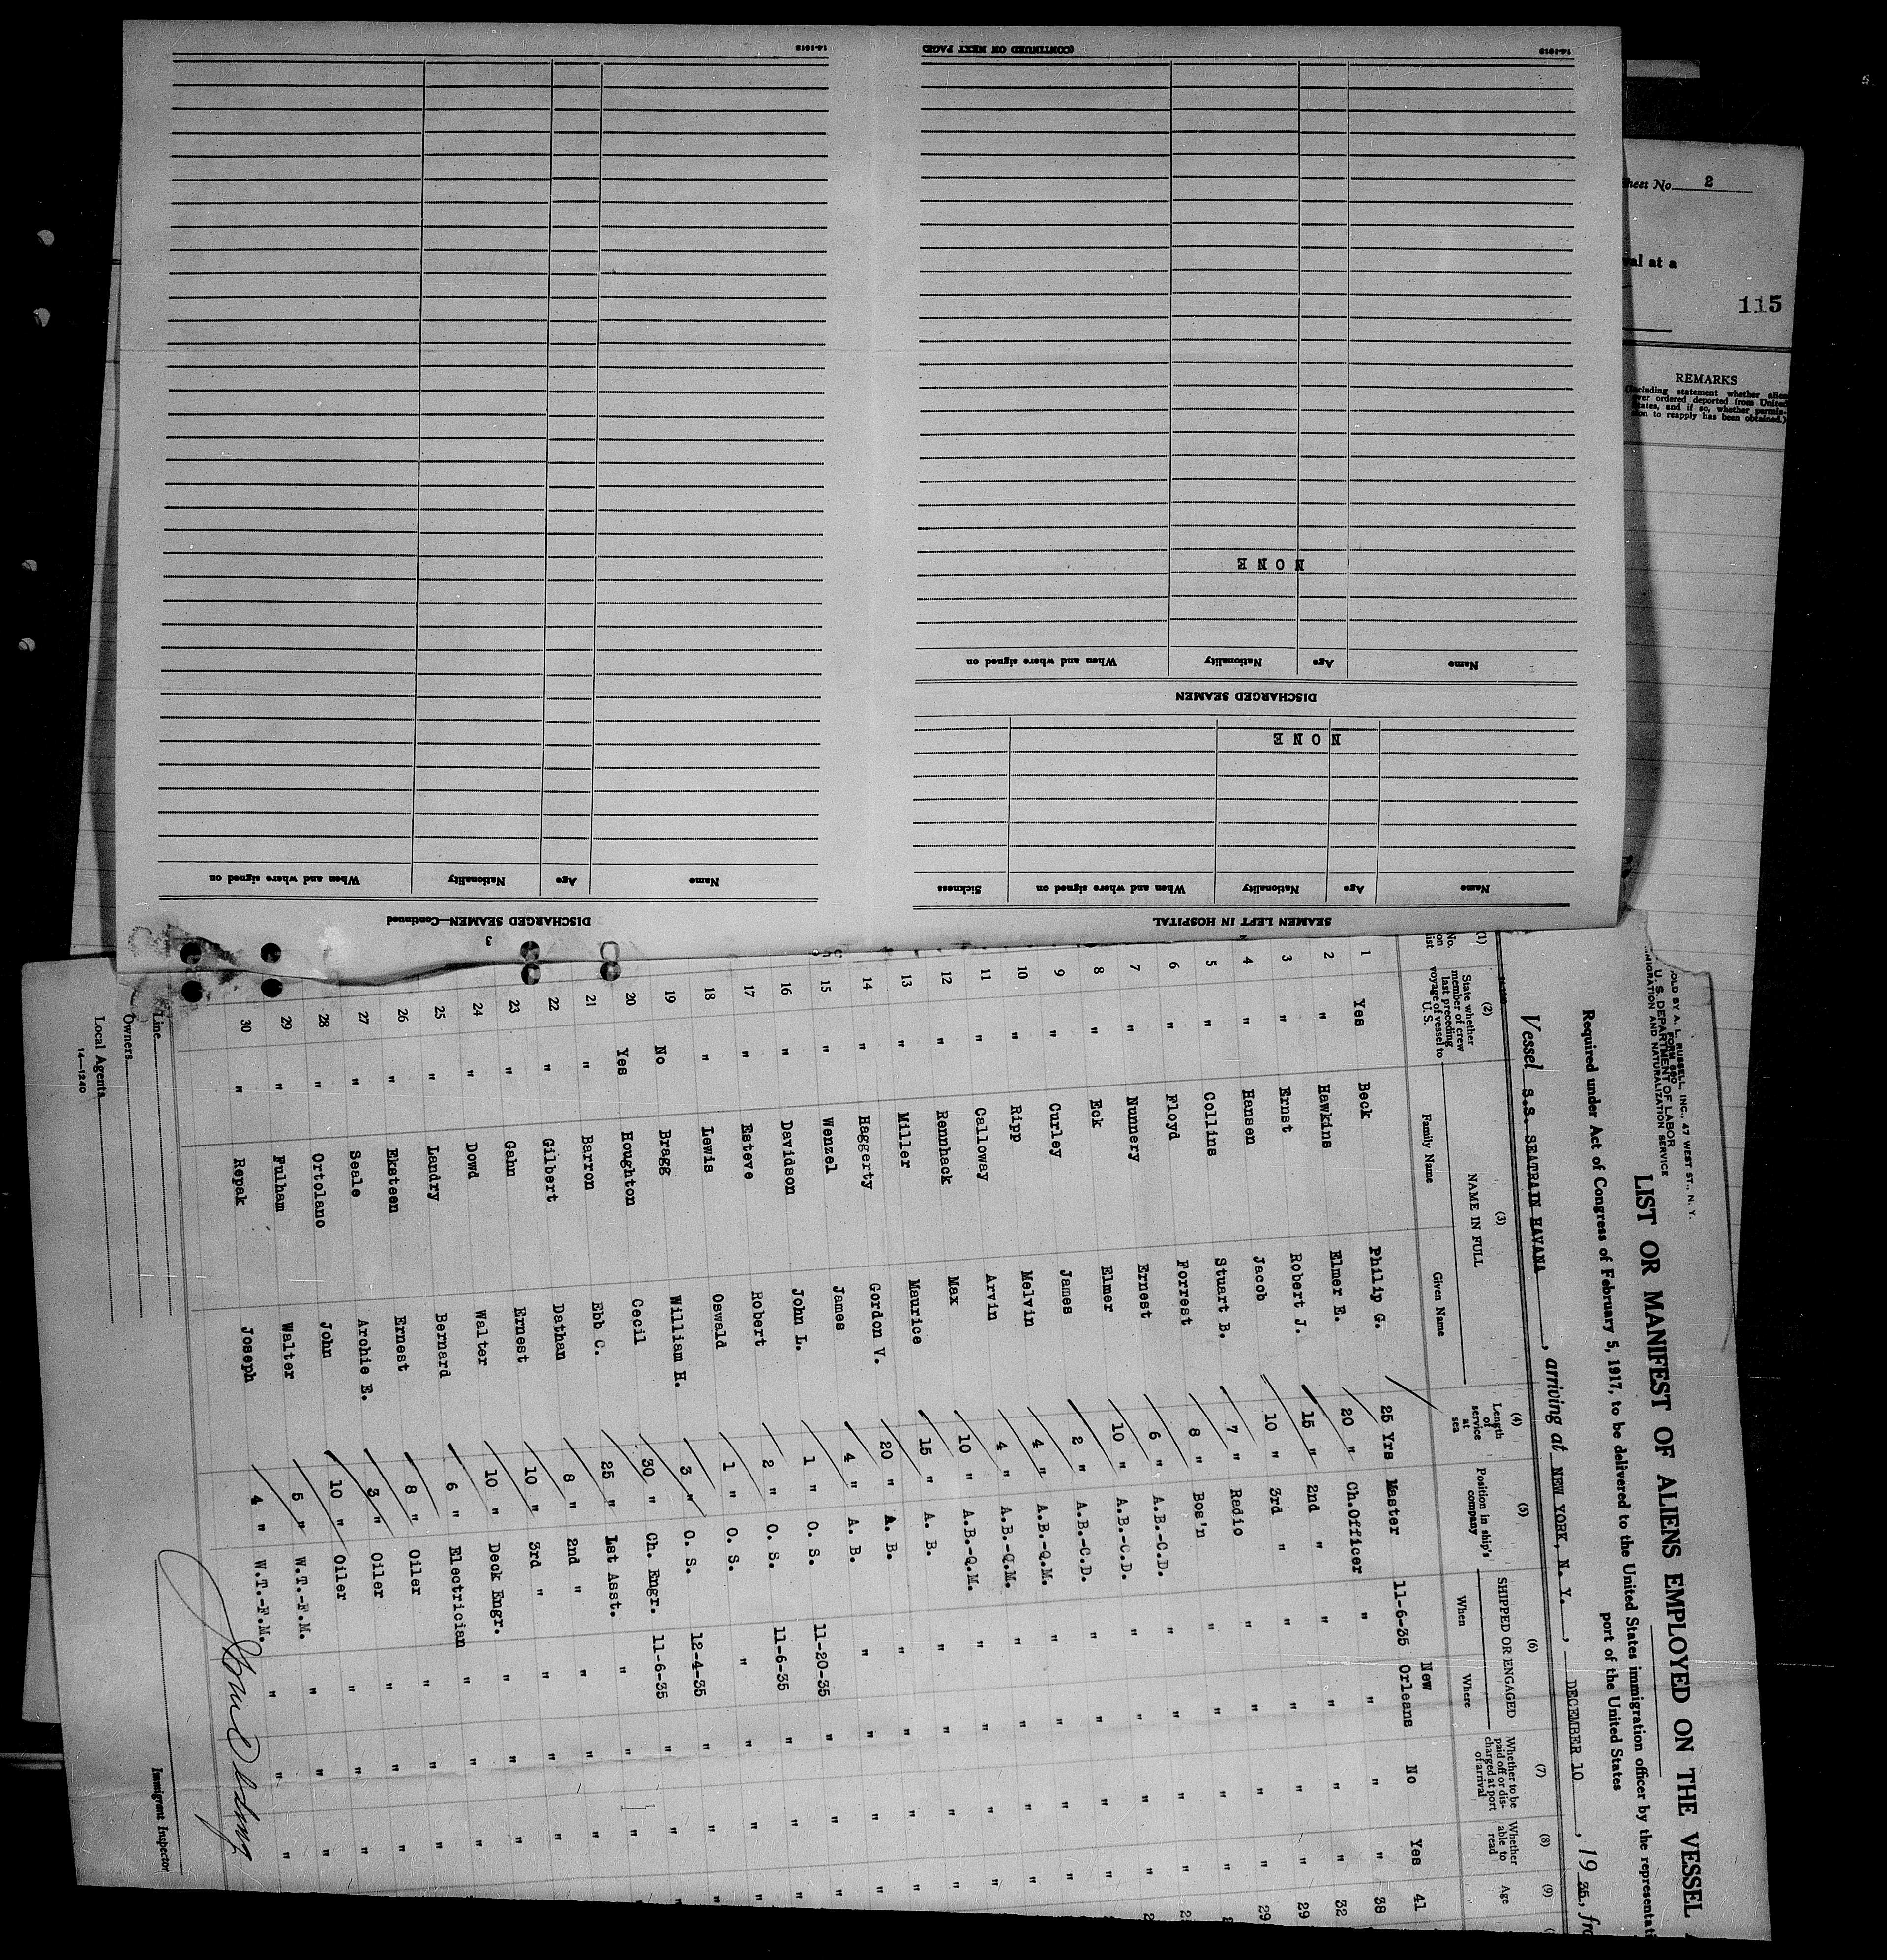 Sheet No. 2
val at a
115
REMARKS
(Including statement whether alien
ever ordered deported from United
States, and if so, whether permis-
sion to reapply has been obtained.)
SEAMEN LEFT IN HOSPITAL
Name Age Nationality When and where signed on Sickness
NONE
DISCHARGED SEAMEN
Name Age Nationality When and where signed on
NONE
14-1618 (CONTINUED ON NEXT PAGE)
2
3
DISCHARGED SEAMEN—Continued
Name Age Nationality When and where signed on
14-1618
SOLD BY A. L. RUSSELL, INC., 47 WEST ST., N. Y.
FORM 680
U. S. DEPARTMENT OF LABOR
IMMIGRATION AND NATURALIZATION SERVICE
LIST OR MANIFEST OF ALIENS EMPLOYED ON THE VESSEL
Required under Act of Congress of February 5, 1917, to be delivered to the United States immigration officer by the representati
port of the United States
Vessel S.S. SEATRAIN HAVANA, arriving at NEW YORK, N. Y., DECEMBER 10, 1935, fro
(1) (2) (3) (4) (5) (6) (7) (8) (9)
No. on list
State whether member of crew last preceding voyage of vessel to U. S.
NAME IN FULL
Family Name Given Name
Length of service at sea
Position in ship's company
SHIPPED OR ENGAGED
When Where
Whether to be paid off or discharged at port of arrival
Whether able to read
Age
1 Yes Beck Philip G. 25 Yrs Master 11-6-35 New Orleans No Yes 41
2 " Hawkins Elmer E. 20 " Ch.Officer " " " " 38
3 " Ernst Robert J. 15 " 2nd " " " " " 32
4 " Hansen Jacob 10 " 3rd " " " " " 29
5 " Collins Stuart B. 7 " Radio " " " " 29
6 " Floyd Forrest 8 " Bos'n " " " " 2
7 " Nunnery Ernest 6 " A.B.-C.D. " " " " 2
8 " Eck Elmer 10 " A.B.-C.D. " " " " 2
9 " Curley James 2 " A.B.-C.D. " " " "
10 " Ripp Melvin 4 " A.B.-Q.M. " " " "
11 " Calloway Arvin 4 " A.B.-Q.M. " " " "
12 " Rennhack Max 10 " A.B.-Q.M. " " " "
13 " Miller Maurice 15 " A. B. " " " "
14 " Haggerty Gordon V. 20 " A. B. " " " "
15 " Wenzel James 4 " A. B. " " " "
16 " Davidson John L. 1 " O. S. 11-20-35 " " "
17 " Esteve Robert 2 " O. S. 11-6-35 " " "
18 " Lewis Oswald 1 " O. S. " " " "
19 No Bragg William H. 3 " O. S. 12-4-35 " " "
20 Yes Houghton Cecil 30 " Ch. Engr. 11-6-35 " " "
21 " Barron Ebb C. 25 " 1st Asst. " " " "
22 " Gilbert Dathan 8 " 2nd " " " " "
23 " Gahn Ernest 10 " 3rd " " " " "
24 " Dowd Walter 10 " Deck Engr. " " " "
25 " Landry Bernard 6 " Electrician " " " "
26 " Eksteen Ernest 8 " Oiler " " " "
27 " Seale Archie E. 3 " Oiler " " " "
28 " Ortolano John 10 " Oiler " " " "
29 " Fulham Walter 5 " W.T.-F.M. " " " "
30 " Repak Joseph 4 " W.T.-F.M. " " " "
Line
Owners
Local Agents
14—1240
Immigrant Inspector